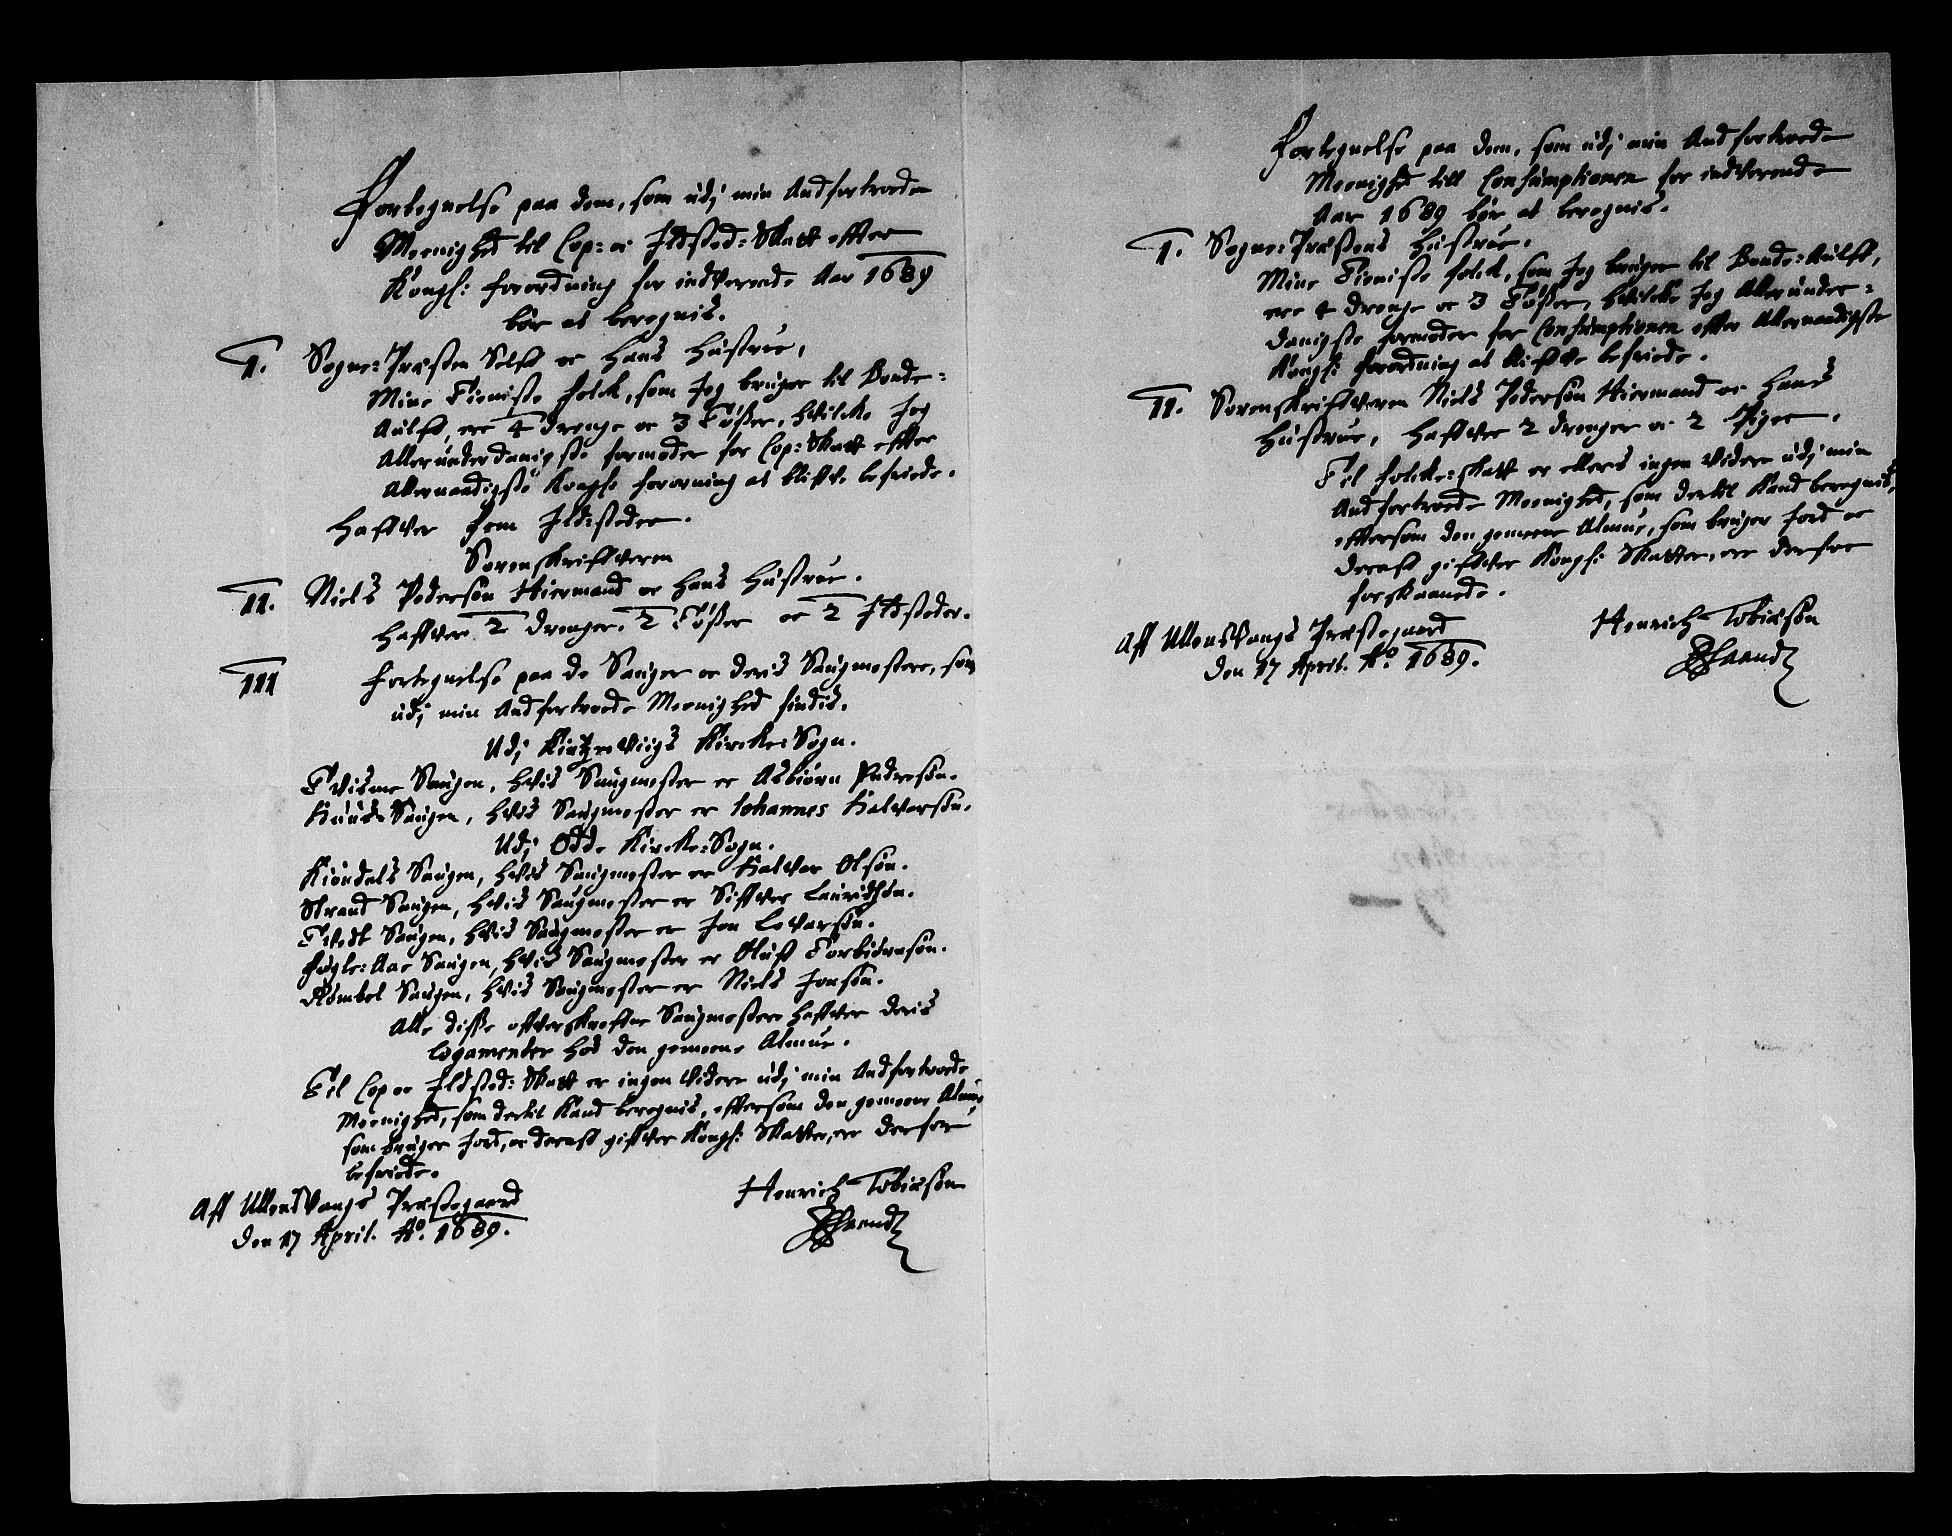 Fortegnelse paa dem, som udj min Andfortroede
Meenighed til Cop: oc Ildsted-Skatt effter
Kongl: forordning for indverende Aar 1689
bør at beregnis.
I. Sogne-Præsten Self oc Hans Hustrue,
Mine Tieniste folck, som Jeg bruger til Bonde-
Aulf, ere 4 drenge oc 3 Tøßer, hvilcke Jeg
Allerunderdanigste formoder for Cop: Skatt effter
Allernaadigste Kongle forordning at blifve befriede.
Hafver fem Ildsteder.
Sorenskrifveren
II. Niels Pedersøn Hiermand oc Hans Hustrue.
Hafver 2 drenger, 2 Tøßer oc 2 Ildsteder.
III Fortegnelse paa de Sauger oc deris Saugmestere, som
udj min Andfortroede Meenighed findis.
Udj Kintzerviigs Kircke-Sogn.
Tvisme Saugen, hvis Saugmester er Asbiørn Pedersøn.
Huuse Saugen, hvis Saugmester er Johannes Halvarsøn.
Udj Odde Kircke-Sogn.
Kiøndals Saugen, hvis Saugmester er Halvar Olsøn.
Strand Saugen, hvis Saugmester er Sifver Lauridsøn.
Tvedt Saugen, hvis Saugmester er Jon Lovarsøn.
Fugle-Aae Saugen, hvis Saugmester er Oluf Torbiørnsøn.
Rømbel Saugen, hvis Saugmester er Niels Jonsøn.
Alle disse ofverskrefne Saugmestere hafver deris
logamenter hos den gemeene Almue.
Til Cop oc Ildsted-Skatt er ingen videre udj min Andfortroede
Meenighed, som dertil kand beregnis, efftersom den gemeene Almue
som bruger Jord, oc deraf gifver Kongl: Skatter, ere derfor
befriede.
Aff Ullensvangs Præstegaard
den 17 April. Ao. 1689.
Henrich Tobiæsøn

Fortegnelse paa dem, som udj min Andfortroede
Meenighed till Consumptionen for indverende
Aar 1689 bør at beregnis.
I. Sogne-Præstens Hustrue.
Mine Tieniste folck, som Jeg bruger til Bonde-Aulf,
ere 4 drenge oc 3 Tøßer, hvilcke Jeg Allerunder-
danigste formoder for Consumptionen effter Allernaadigste
Kongl: forordning at blifve befriede.
II. Sorenskrifveren Niels Pedersøn Hiermand oc Hans
Hustrue, hafver 2 drenger oc 2 Piger.
Til folcke-skatt er ellers ingen videre udj min
Andfortroede Meenighed, som dertil kand beregnis,
efftersom den gemeene Almue, som bruger Jord oc
deraf gifver Kongl: Skatter, ere derfor
forskaanede.
Aff Ullensvangs Præstegaard
den 17 April. Ao. 1689.
Henrich Tobiæsøn